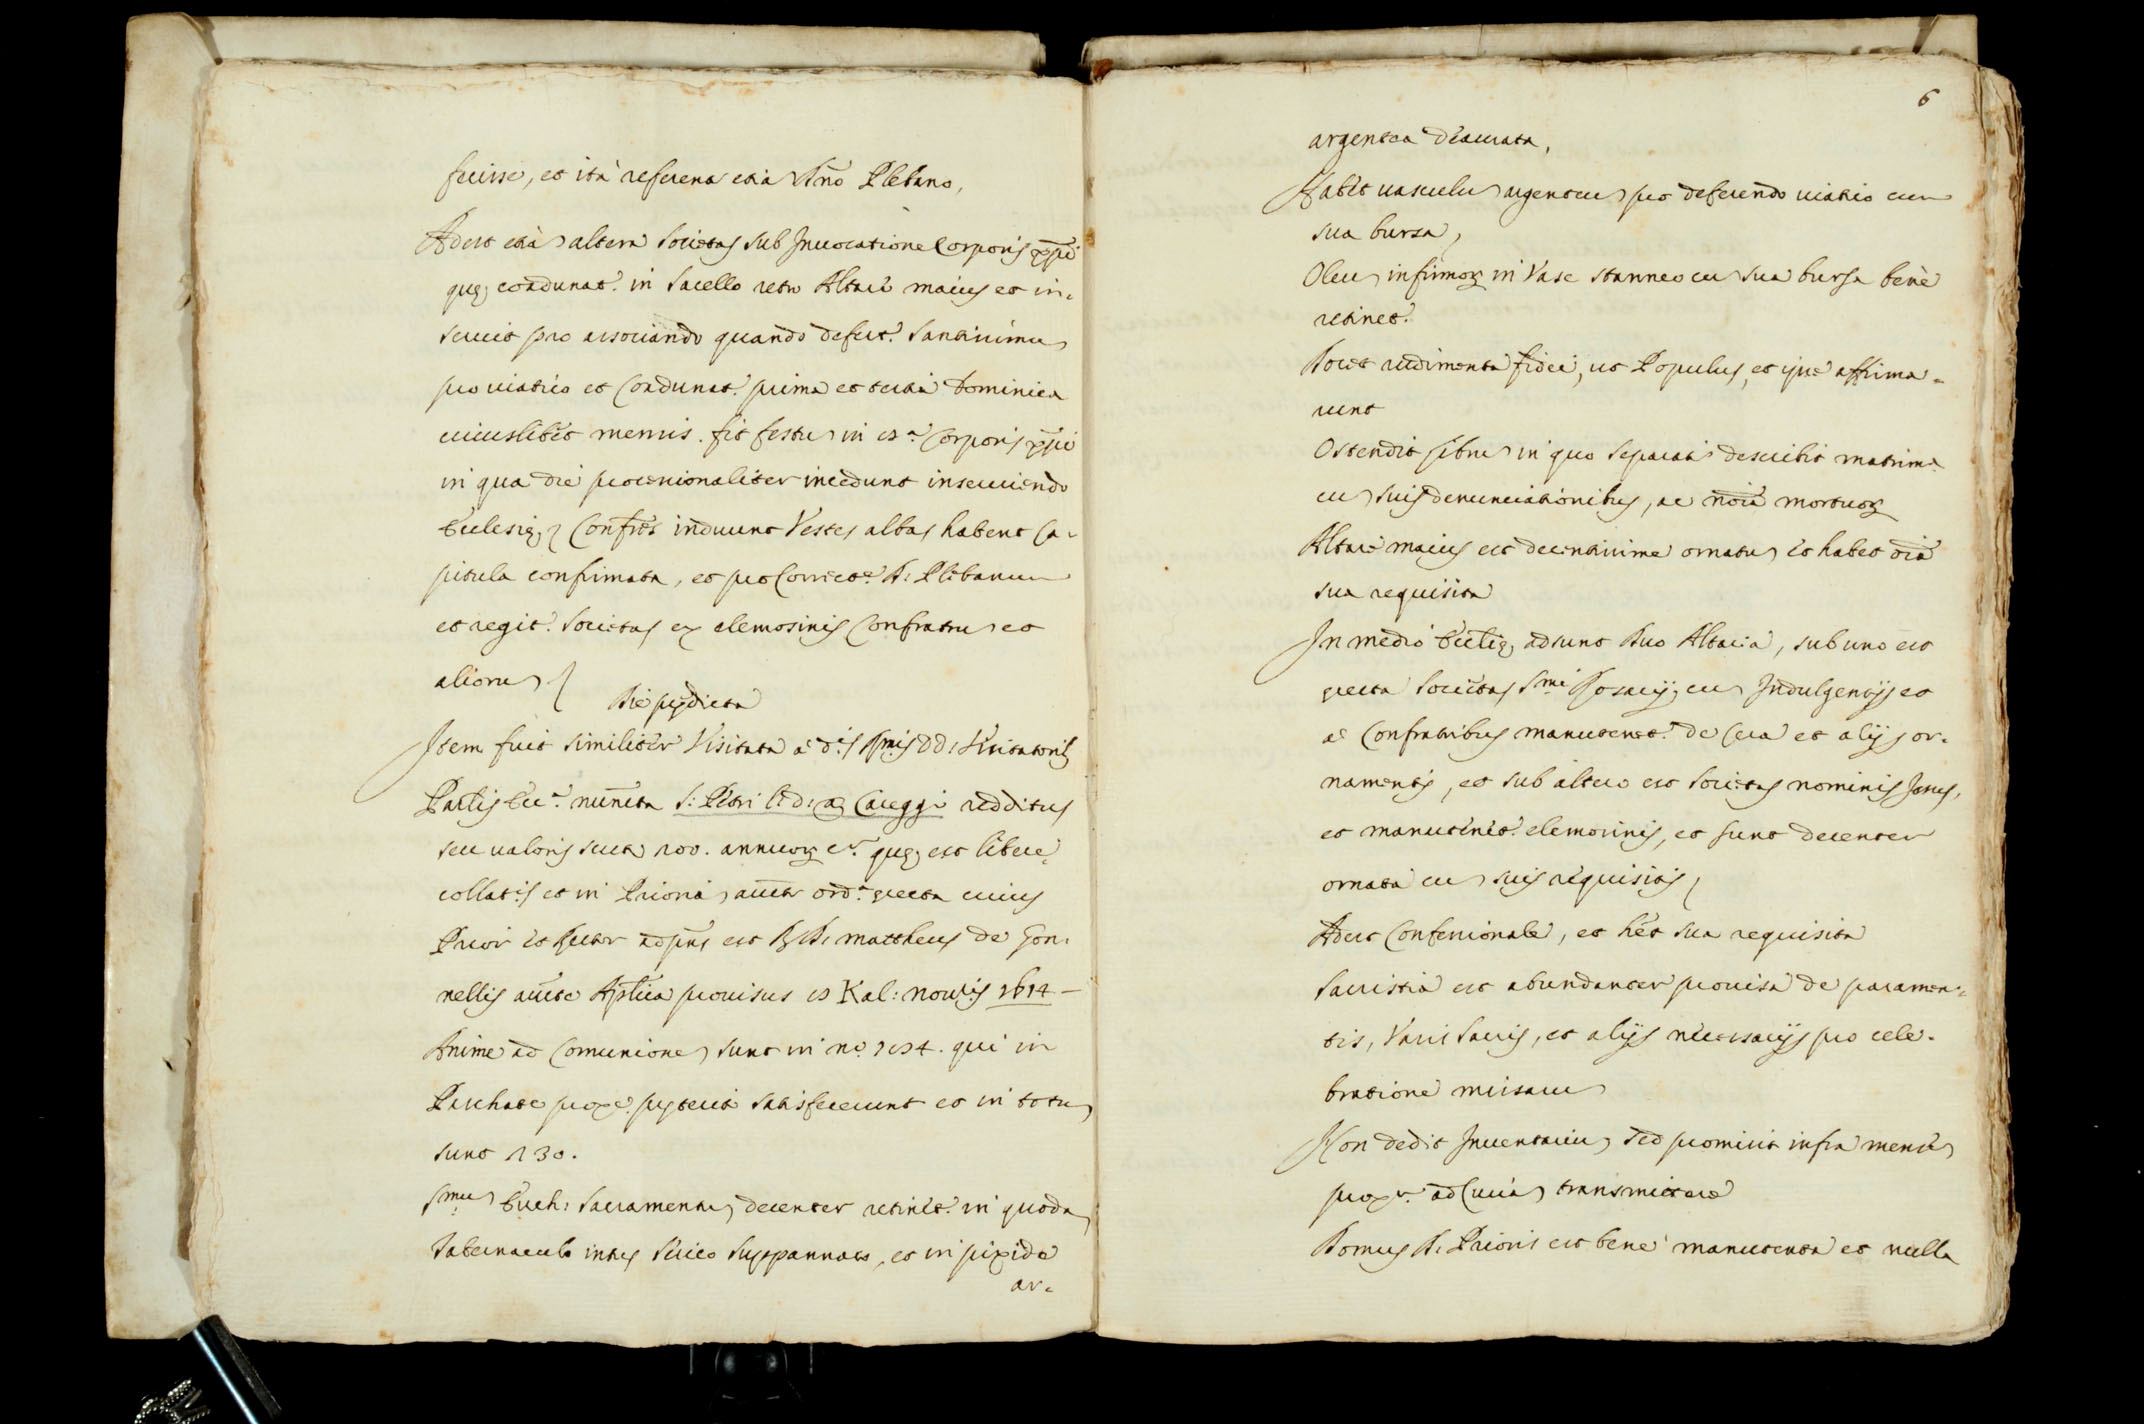 fecisse, et ità referena etià Dño Plebano,
Adest etià altera Societas sub Invocatione Corporis xp̄i
que coadunat.r in Sacello retro Altare maius et in=
servit pro associando quando defert.r Santissimu
pro viatico et Coadunat.r prima et tertia Dominica
cuiuslibet mensis. fit festu in
Corporis xp̄i
in qua die processionaliter incedunt inserviendo
Ecclesie, Confr̄es induunt Vestes albas habent Ca=
pitula confirmata, et pro Correct.e D: Plebanum
et regit.r Societas ex elemosinis Confratru et
alioru
Die predicta
Item fuit similiter Visitata a d.is Rmis DD: Visitatorib
Par̄lis Ecc.a nun̄cta S: Petri
Careggi redditus
seu valoris scut 100. annuor
que est libere
collat.is et in Prioria auc̄te ord.a erecta cuius
Prior et Rector adpn̄s est R. D: mattheus de Gon=
nellis auc̄te Ap̄lica provisus
Kal: Novbis 1614 -
Anime ad Comunione sunt in n.o
qui in
Paschate prox.e preterit satisfecerunt et in totu
sunt 130.
Smu Euch: Sacramentu decenter retinet.r in quoda
Tabernaculo intus serico suppannato, et in pixide
ar=
6
argentea deaurata,
Habet vasculu argenteu pro deferendo viatico cum
sua bursa,
Oleu infirmor in Vase stanneo cu sua bursa benè
retinet.r
Docet rudimenta fidei, ut Populus, et ipse affirma=
runt
Ostendit libru in quo separat describit matrim.a
cu suis denunciationibus, ac noīa mortuor
Altare maius est decentissime ornatu et habet oīa
sua requisita
In medio Ecc̄lie adsunt Duo Altaria, sub uno est
erecta Societas Smi Rosarij, cu Indulgentijs et
a Confratribus manutenet.r de Cera et alijs or=
namentis, et sub altero est Societas nominis Jesus,
et manutenet.r elemosinis, et sunt decenter
ornata cu suis requisitis
Adest Confessionale, et het sua requisita
Sacristia est abundanter provisa de paramen=
tis, Vasis Sacris, et alijs necessarijs pro cele=
bratione missaru
Non dedit Inventariu sed promisit infra mense
prox.e ad Curia transmittere
Domus D. Prioris est benè manutenta et nulla